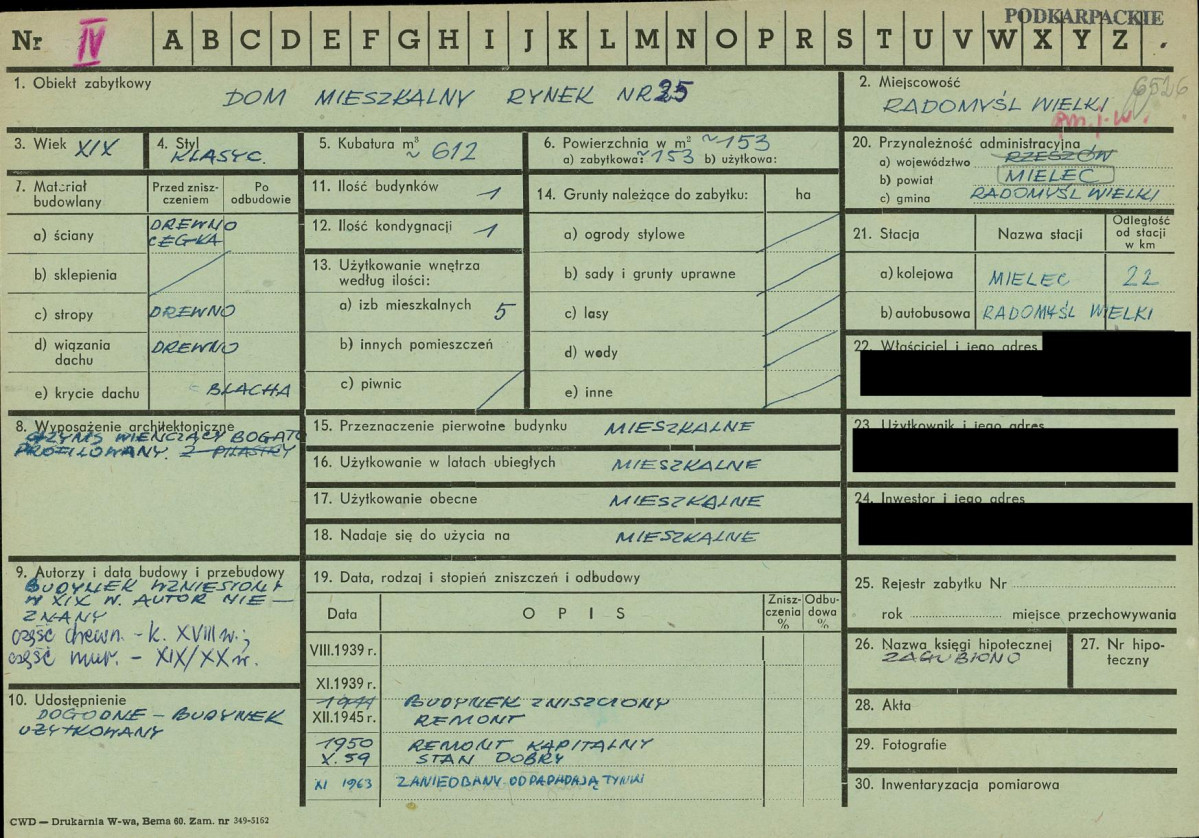 PODKARPACKIE
Nr IV A B C D E F G H I J K L M N O P R S T U V W X Y Z .
1. Obiekt zabytkowy
DOM MIESZKALNY RYNEK NR 25
2. Miejscowość
6526
RADOMYŚL WIELKI
3. Wiek XIX
4. Styl
KLASYC.
5. Kubatura m³
~ 612
6. Powierzchnia w m² ~153
a) zabytkowa: ~153 b) użytkowa:
20. Przynależność administracyjna
a) województwo RZESZÓW
b) powiat MIELEC
c) gmina RADOMYŚL WIELKI
7. Materiał budowlany
Przed zniszczeniem
Po odbudowie
a) ściany DREWNO
CEGŁA
b) sklepienia
c) stropy DREWNO
d) wiązania dachu DREWNO
e) krycie dachu BLACHA
11. Ilość budynków 1
12. Ilość kondygnacji 1
13. Użytkowanie wnętrza
według ilości:
a) izb mieszkalnych 5
b) innych pomieszczeń
c) piwnic
14. Grunty należące do zabytku: ha
a) ogrody stylowe
b) sady i grunty uprawne
c) lasy
d) wody
e) inne
21. Stacja
Nazwa stacji
Odległość od stacji w km
a) kolejowa MIELEC 22
b) autobusowa RADOMYŚL WIELKI
22. Właściciel i jego adres
8. Wyposażenie architektoniczne
GZYMS WIEŃCZĄCY BOGATO
PROFILOWANY. Z PILASTRY
15. Przeznaczenie pierwotne budynku MIESZKALNE
16. Użytkowanie w latach ubiegłych MIESZKALNE
17. Użytkowanie obecne MIESZKALNE
18. Nadaje się do użycia na MIESZKALNE
23. Użytkownik i jego adres
24. Inwestor i jego adres
9. Autorzy i data budowy i przebudowy
BUDYNEK WZNIESIONY
W XIX W. AUTOR NIE-
ZNANY
część drewn. - k. XVIII w.;
część mur. - XIX/XX w.
10. Udostępnienie
DOGODNE - BUDYNEK
UŻYTKOWANY
19. Data, rodzaj i stopień zniszczeń i odbudowy
Data
OPIS
Zniszczenia %
Odbudowa %
VIII.1939 r.
XI.1939 r.
1944 BUDYNEK ZNISZCZONY
XII.1945 r. REMONT
1950 REMONT KAPITALNY
X. 59 STAN DOBRY
XI 1963 ZANIEDBANY. ODPADAJĄ TYNKI
25. Rejestr zabytku Nr
rok miejsce przechowywania
26. Nazwa księgi hipotecznej
ZAGUBIONO
27. Nr hipoteczny
28. Akta
29. Fotografie
30. Inwentaryzacja pomiarowa
CWD — Drukarnia W-wa, Bema 60. Zam. nr 349-5162